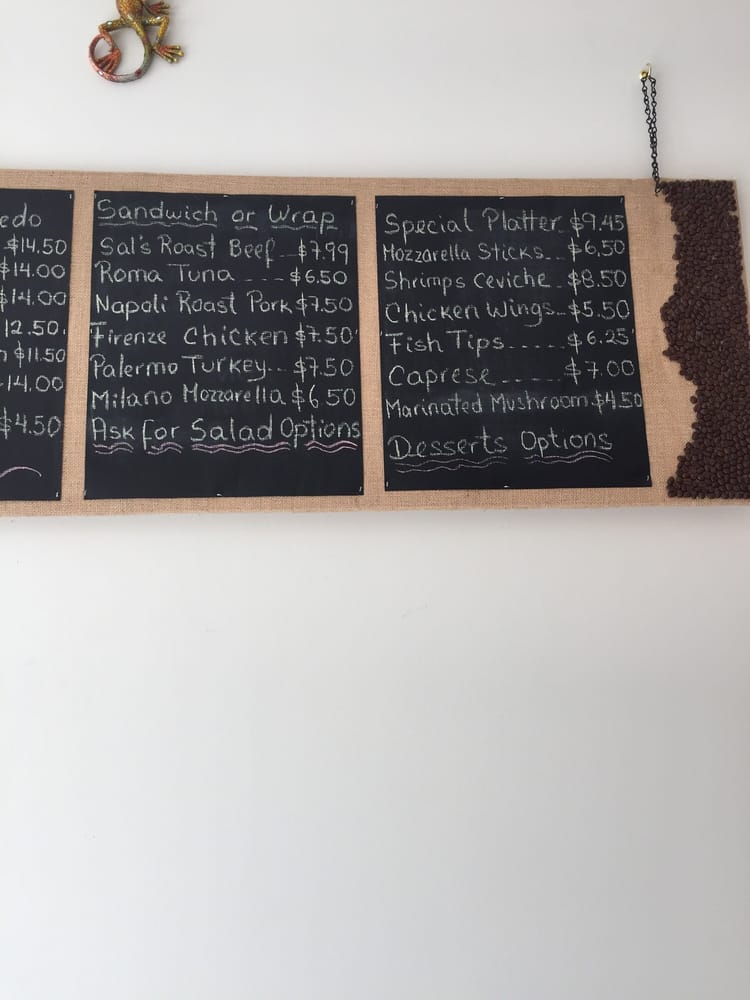 edo
$14.50
$14.00
$14.00
12.50
$11.50
14.00
$4.50
Sandwich or Wrap
Sal's Roast Beef $7.99
Roma Tuna ---- $6.50
Napoli Roast Pork $7.50
Firenze Chicken $7.50
Palermo Turkey--- $7.50
Milano Mozzarella $6.50
Ask for Salad Options
Special Platter $9.45
Mozzarella Sticks... $6.50
Shrimps Ceviche... $8.50
Chicken Wings... $5.50
Fish Tips ...... $6.25
Caprese ....... $7.00
Marinated Mushroom $4.50
Desserts Options